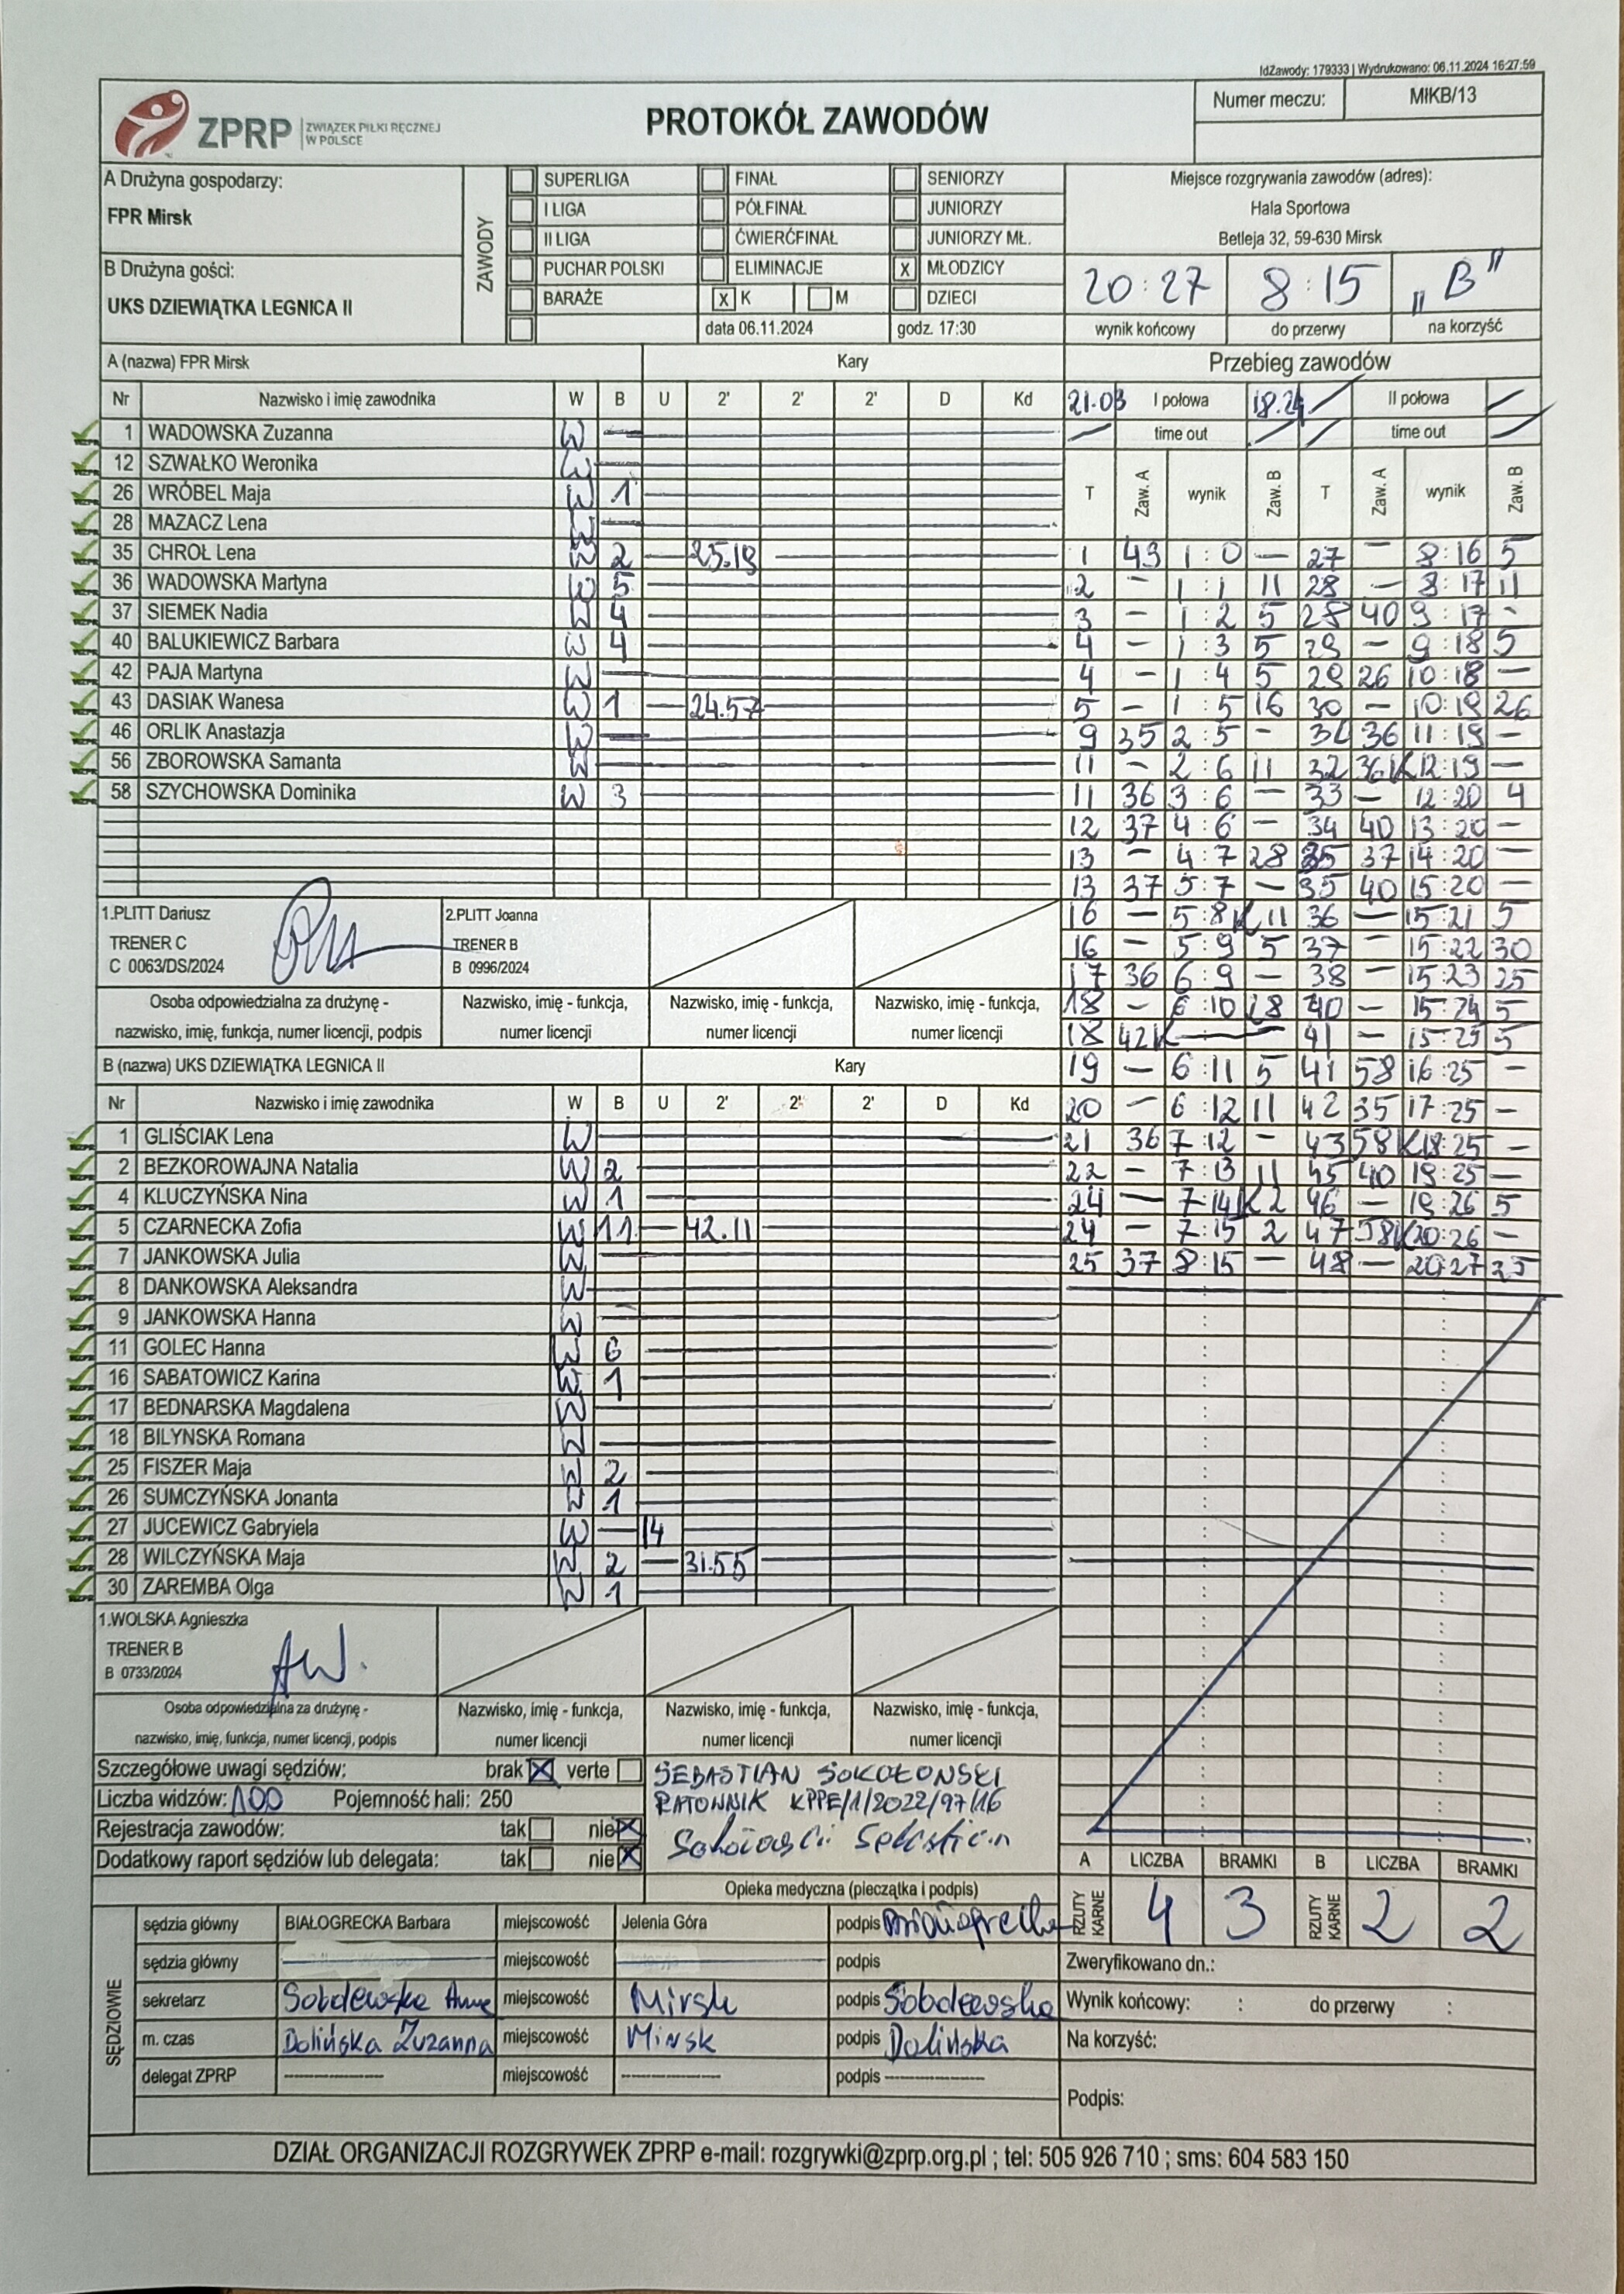 IdZawody: 179333 | Wydrukowano: 06.11.2024 16:27:59
ZPRP ZWIĄZEK PIŁKI RĘCZNEJ W POLSCE
PROTOKÓŁ ZAWODÓW
Numer meczu: MIKB/13
A Drużyna gospodarzy:
FPR Mirsk
B Drużyna gości:
UKS DZIEWIĄTKA LEGNICA II
ZAWODY
SUPERLIGA FINAŁ SENIORZY
I LIGA PÓŁFINAŁ JUNIORZY
II LIGA ĆWIERĆFINAŁ JUNIORZY MŁ.
PUCHAR POLSKI ELIMINACJE X MŁODZICY
BARAŻE X K M DZIECI
data 06.11.2024 godz. 17:30
Miejsce rozgrywania zawodów (adres):
Hala Sportowa
Betleja 32, 59-630 Mirsk
20:27 8:15 „B"
wynik końcowy do przerwy na korzyść
A (nazwa) FPR Mirsk Kary
Nr Nazwisko i imię zawodnika W B U 2' 2' 2' D Kd
1 WADOWSKA Zuzanna W —
12 SZWAŁKO Weronika W —
26 WRÓBEL Maja W 1
28 MAZACZ Lena W —
35 CHROŁ Lena W 2 — 25.19
36 WADOWSKA Martyna W 5
37 SIEMEK Nadia W 4
40 BALUKIEWICZ Barbara W 4
42 PAJA Martyna W —
43 DASIAK Wanesa W 1 — 24.57
46 ORLIK Anastazja W —
56 ZBOROWSKA Samanta W —
58 SZYCHOWSKA Dominika W 3
1.PLITT Dariusz
TRENER C
C 0063/DS/2024
2.PLITT Joanna
TRENER B
B 0996/2024
Osoba odpowiedzialna za drużynę -
nazwisko, imię, funkcja, numer licencji, podpis
Nazwisko, imię - funkcja, numer licencji
Nazwisko, imię - funkcja, numer licencji
Nazwisko, imię - funkcja, numer licencji
B (nazwa) UKS DZIEWIĄTKA LEGNICA II Kary
Nr Nazwisko i imię zawodnika W B U 2' 2' 2' D Kd
1 GLIŚCIAK Lena W —
2 BEZKOROWAJNA Natalia W 2
4 KLUCZYŃSKA Nina W 1
5 CZARNECKA Zofia W 11 — 42.11
7 JANKOWSKA Julia W —
8 DANKOWSKA Aleksandra W —
9 JANKOWSKA Hanna W —
11 GOLEC Hanna W 6
16 SABATOWICZ Karina W 1
17 BEDNARSKA Magdalena W —
18 BILYNSKA Romana W —
25 FISZER Maja W 2
26 SUMCZYŃSKA Jonanta W 1
27 JUCEWICZ Gabryiela W — 14
28 WILCZYŃSKA Maja W 2 — 31.55
30 ZAREMBA Olga W 1
1.WOLSKA Agnieszka
TRENER B
B 0733/2024
AW.
Osoba odpowiedzialna za drużynę -
nazwisko, imię, funkcja, numer licencji, podpis
Nazwisko, imię - funkcja, numer licencji
Nazwisko, imię - funkcja, numer licencji
Nazwisko, imię - funkcja, numer licencji
Przebieg zawodów
21.03 I połowa 18.24 II połowa
time out time out
T Zaw. A wynik Zaw. B T Zaw. A wynik Zaw. B
1 43 1:0 — 27 — 8:16 5
2 — 1:1 11 28 — 8:17 11
3 — 1:2 5 28 40 9:17 —
4 — 1:3 5 29 — 9:18 5
4 — 1:4 5 29 26 10:18 —
5 — 1:5 16 30 — 10:19 26
9 35 2:5 — 31 36 11:19 —
11 — 2:6 11 32 36K 12:19 —
11 36 3:6 — 33 — 12:20 4
12 37 4:6 — 34 40 13:20 —
13 — 4:7 28 35 37 14:20 —
13 37 5:7 — 35 40 15:20 —
16 — 5:8 K 11 36 — 15:21 5
16 — 5:9 5 37 — 15:22 30
17 36 6:9 — 38 — 15:23 25
18 — 6:10 28 40 — 15:24 5
18 42K — 41 — 15:25 5
19 — 6:11 5 41 58 16:25 —
20 — 6:12 11 42 35 17:25 —
21 36 7:12 — 43 58K 18:25 —
22 — 7:13 11 45 40 19:25 —
24 — 7:14 K 2 46 — 19:26 5
24 — 7:15 2 47 58K 20:26 —
25 37 8:15 — 48 — 20:27 25
Szczegółowe uwagi sędziów: brak X verte
Liczba widzów: 100 Pojemność hali: 250
Rejestracja zawodów: tak nie X
Dodatkowy raport sędziów lub delegata: tak nie X
SEBASTIAN SOKOŁOWSKI
RATOWNIK KPPE/1/2022/97/16
Sokołowski Sebastian
Opieka medyczna (pieczątka i podpis)
A LICZBA BRAMKI B LICZBA BRAMKI
RZUTY KARNE 4 3 RZUTY KARNE 2 2
SĘDZIOWIE
sędzia główny BIAŁOGRECKA Barbara miejscowość Jelenia Góra podpis Białogrecka
sędzia główny miejscowość podpis
sekretarz Sobolewska Anna miejscowość Mirsk podpis Sobolewska
m. czas Dolińska Zuzanna miejscowość Mirsk podpis Dolińska
delegat ZPRP ---------- miejscowość ---------- podpis ----------
Zweryfikowano dn.:
Wynik końcowy: : do przerwy :
Na korzyść:
Podpis:
DZIAŁ ORGANIZACJI ROZGRYWEK ZPRP e-mail: rozgrywki@zprp.org.pl ; tel: 505 926 710 ; sms: 604 583 150